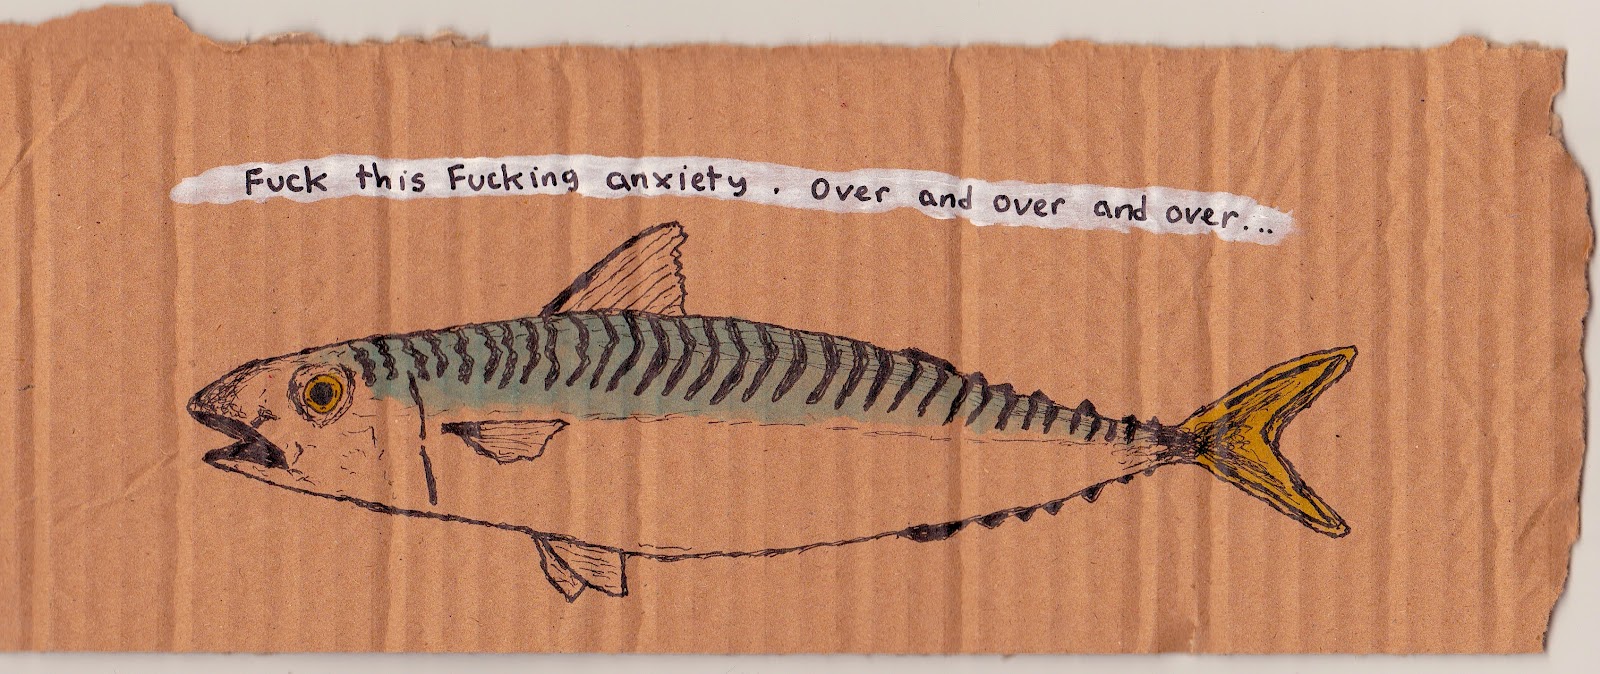 Fuck this Fucking anxiety. Over and over and over...